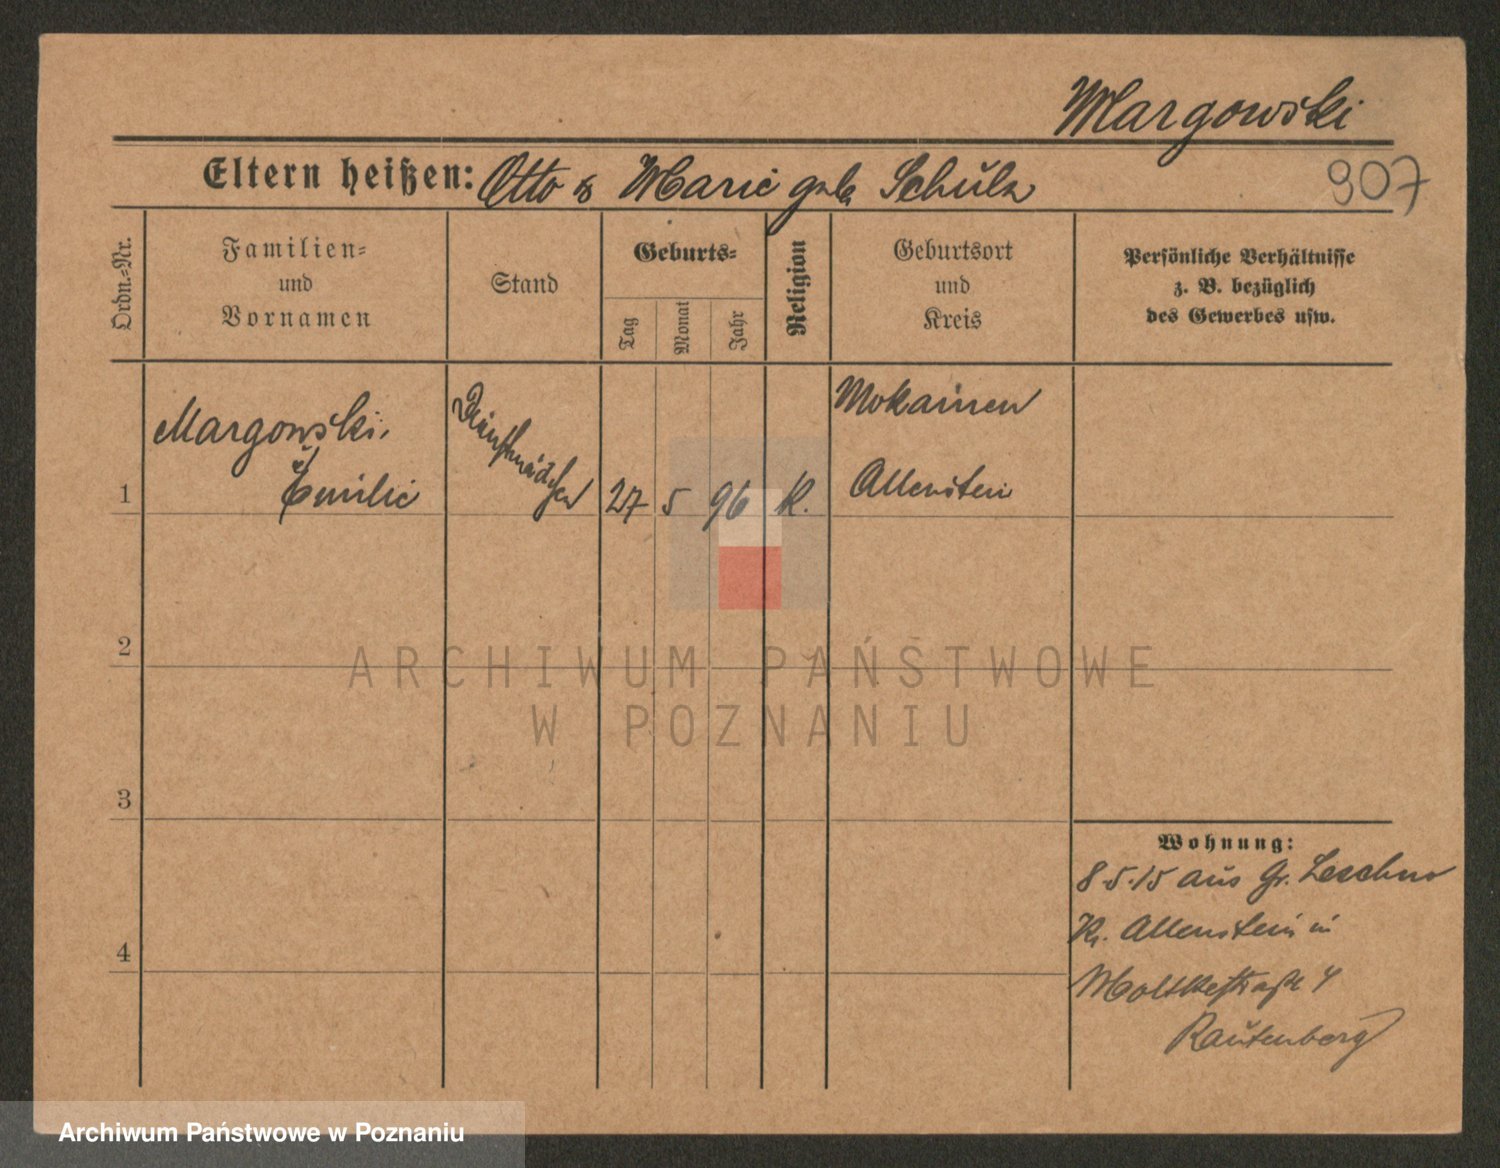 Margowski
Eltern heißen: Otto & Marie geb. Schulz
907
Ordn.=Nr.
Familien=
und
Vornamen
Stand
Geburts=
Tag
Monat
Jahr
Religion
Geburtsort
und
Kreis
Persönliche Verhältnisse
z. B. bezüglich
des Gewerbes usw.
1
Margowski,
Emilie
Dienstmädchen
27 5 96 K.
Mokainen
Allenstein
2
3
4
Wohnung:
8.5.15 aus Gr. Leschno
Kr. Allenstein in
Moltkestraße 4
Rautenberg
ARCHIWUM PAŃSTWOWE
W POZNANIU
Archiwum Państwowe w Poznaniu